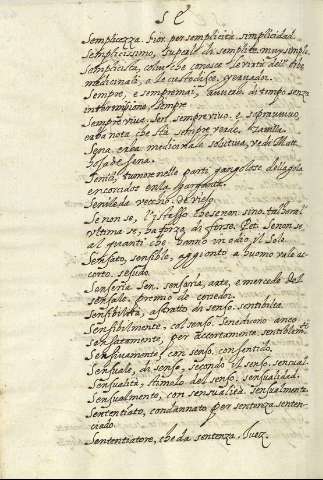 S E
Semplicezza. bior. per semplicità. simplicidad.
Semplicissimo, superl. da semplice. muy simple.
Semplicista, colui che conosce le virtù dell' erbe
medicinali, o le custodisce.
Sempre, e sempremai, auuerb. di tempo, senza
intermisione, siempre
Sempreviva. Sen. semprevivo. e sopravuvuo,
erba nota che stà sempre verde.
Sena. erba medicinale solutiva, vedi Matt.
hosa de sena.
Senici, tumore nelle parti gangolose della gola
en la garganta.
Senile, da vecchio. de viejo.
Se non se, l'istesso che se non, sino.
ultima se, ha forza di forse. Pet. Se non se
al quanti che hanno in odio il Sole
Sensato, sensibile, aggionto a huomo vale ac
corto. sesudo.
Senseria. Sen. sensaria, arte, e mercede del
sensale. premio de corredor.
Sensibilità, astratto di senso. sentibilta
Sensibilmente, col senso. Senediuono anco
sensatamente, per accortamente. sentiblem.te
Sensivamente, con senso. con sentido.
Sensuale, di senso, secondo il senso. sensual.
Sensualità, stimolo del senso. sensualidad.
Sensualmente, con sensualità. Sensualmente
Sententiato, condannato per sentenza. senten-
ciado.
Sententiatore, che da sentenza. Juez.